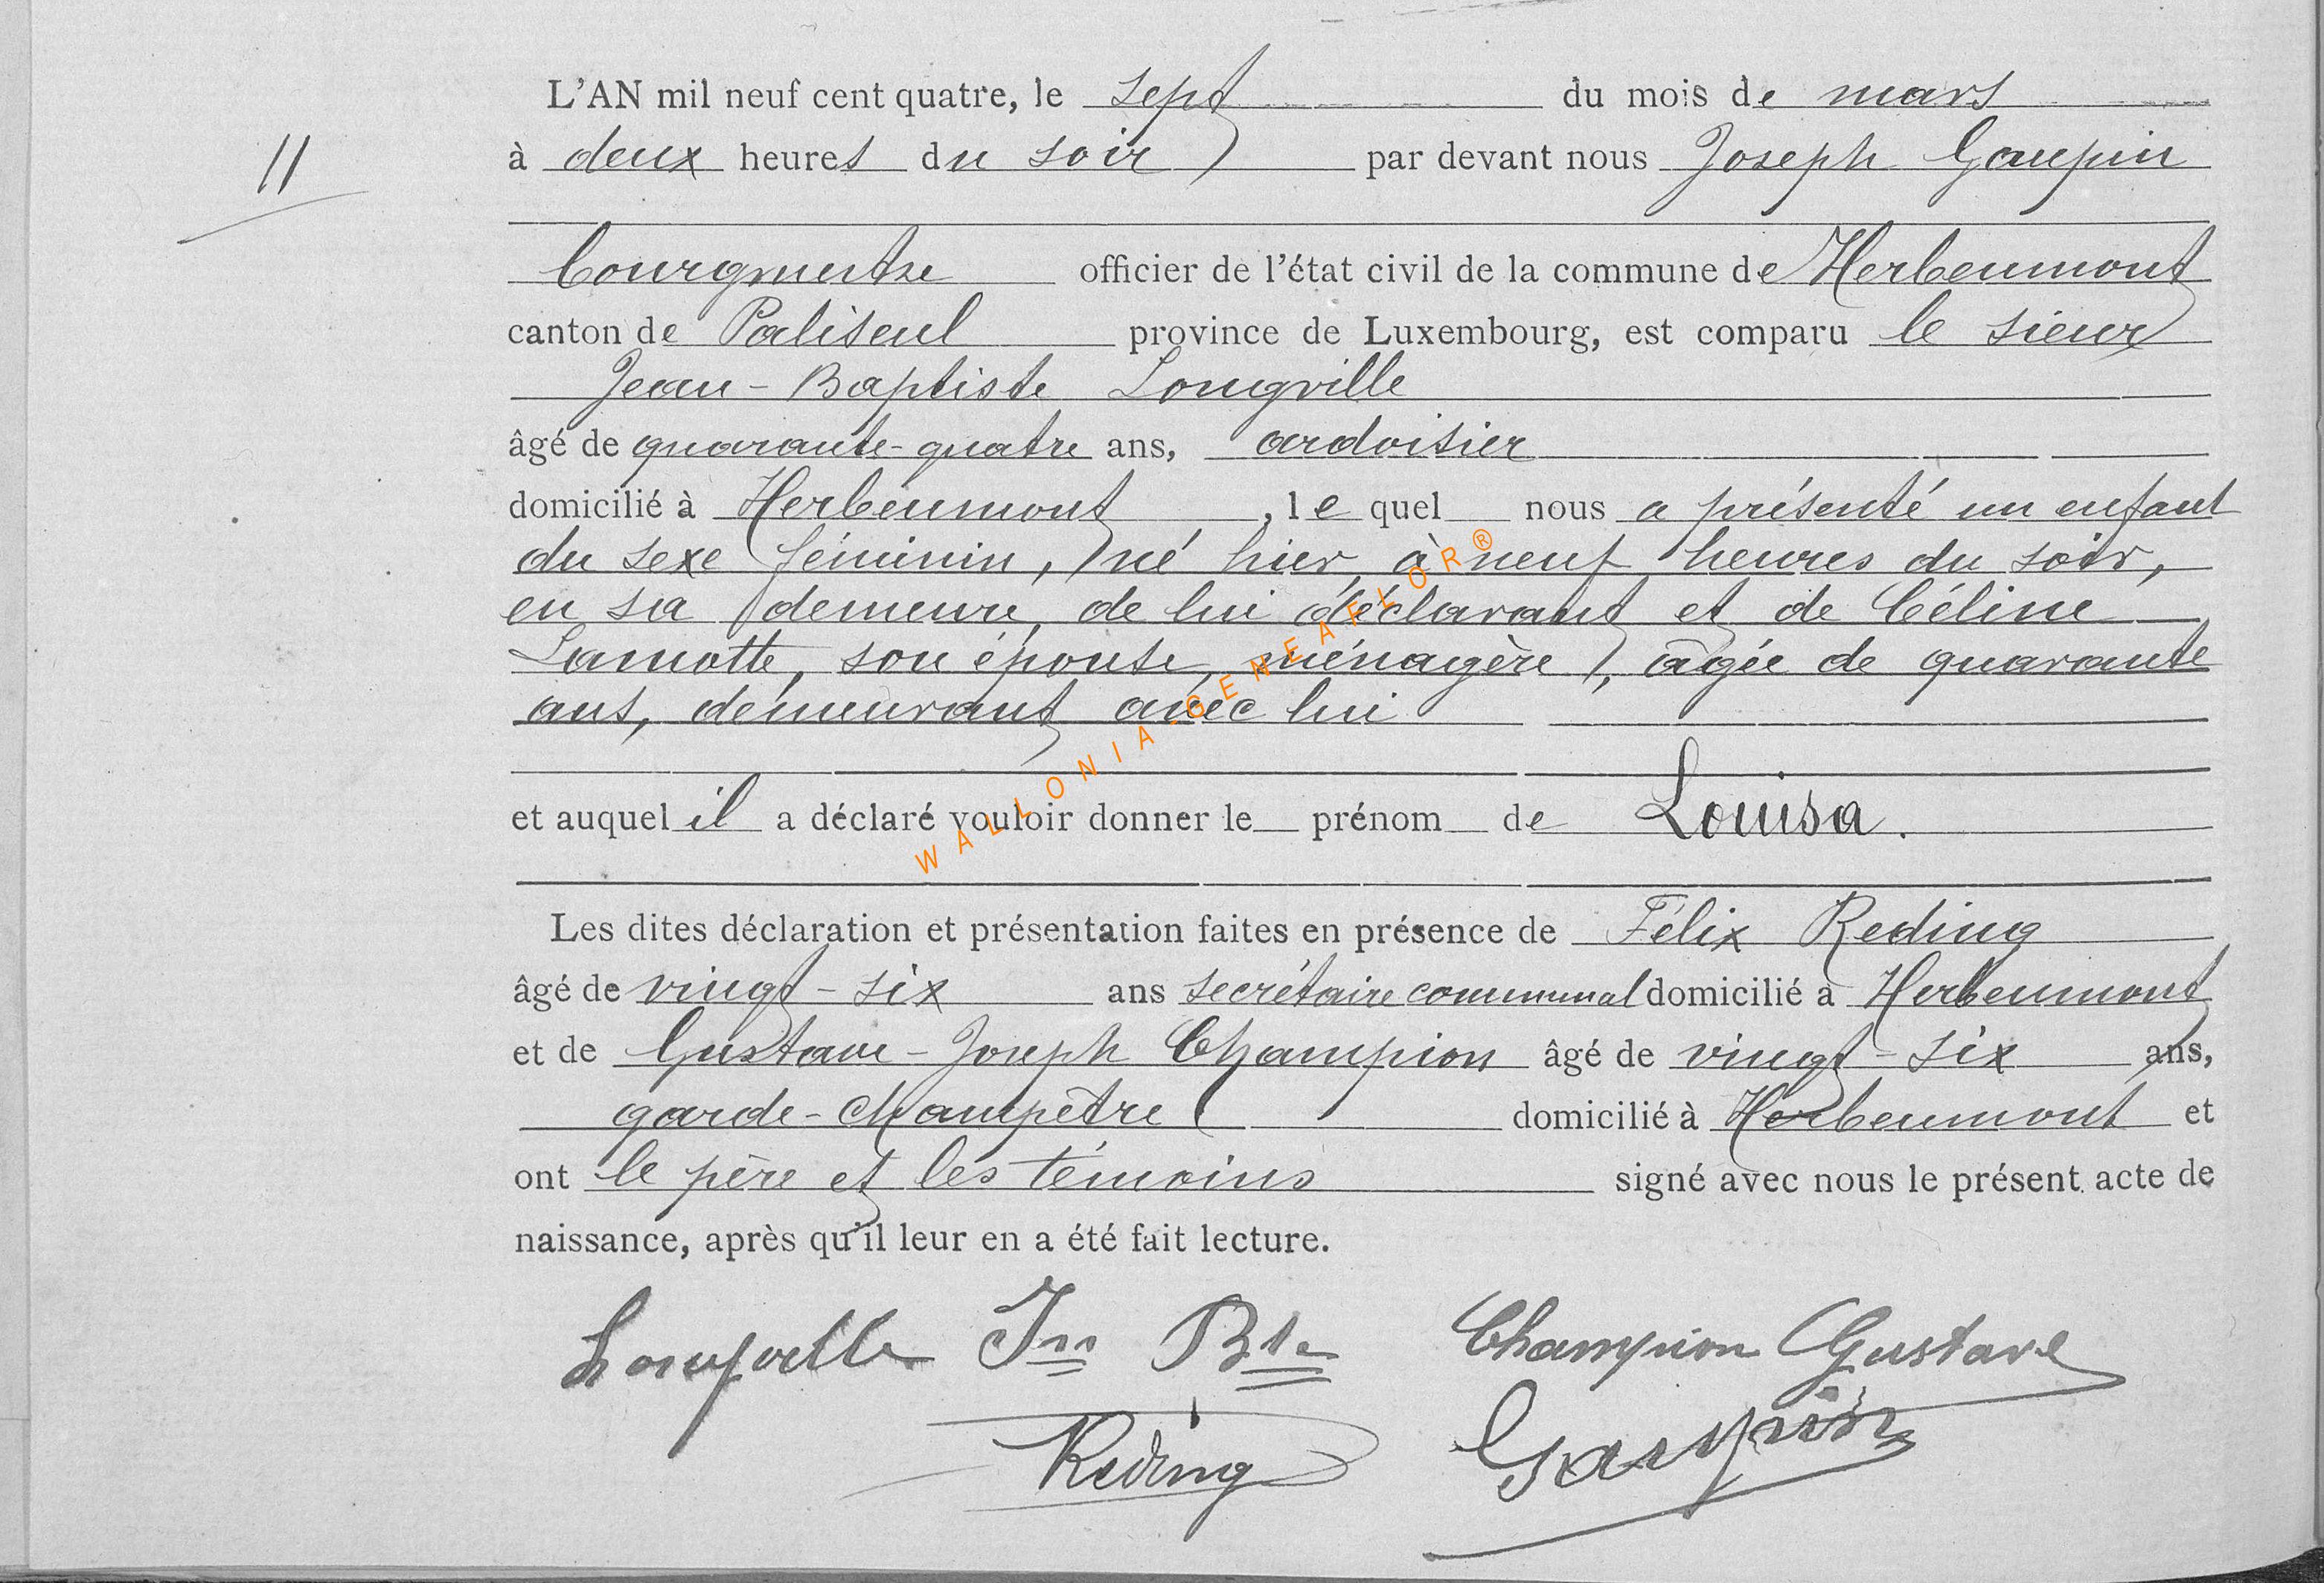 L'AN mil neuf cent quatre, le sept du mois de mars
11
à deux heures du soir par devant nous Joseph Gaupin
bourgmestre officier de l'état civil de la commune de Herbeumont
canton de Paliseul province de Luxembourg, est comparu le sieur
Jean-Baptiste Longville
âgé de quarante-quatre ans, ardoisier
domicilié à Herbeumont, lequel nous a présenté un enfant
du sexe féminin, né hier, à neuf heures du soir,
en sa demeure, de lui déclarant et de Céline
Lamotte, son épouse, ménagère, âgée de quarante
ans, demeurant avec lui
et auquel il a déclaré vouloir donner le prénom de Louisa.
Les dites déclaration et présentation faites en présence de Félix Reding
âgé de vingt-six ans secrétaire communal domicilié à Herbeumont
et de Gustave-Joseph Champion âgé de vingt-six ans,
garde-champêtre domicilié à Herbeumont et
ont le père et les témoins signé avec nous le présent acte de
naissance, après qu'il leur en a été fait lecture.
Longville Jn Bte Champion Gustave
Reding Gaupin
WALLONIA-GENEAFLOR®